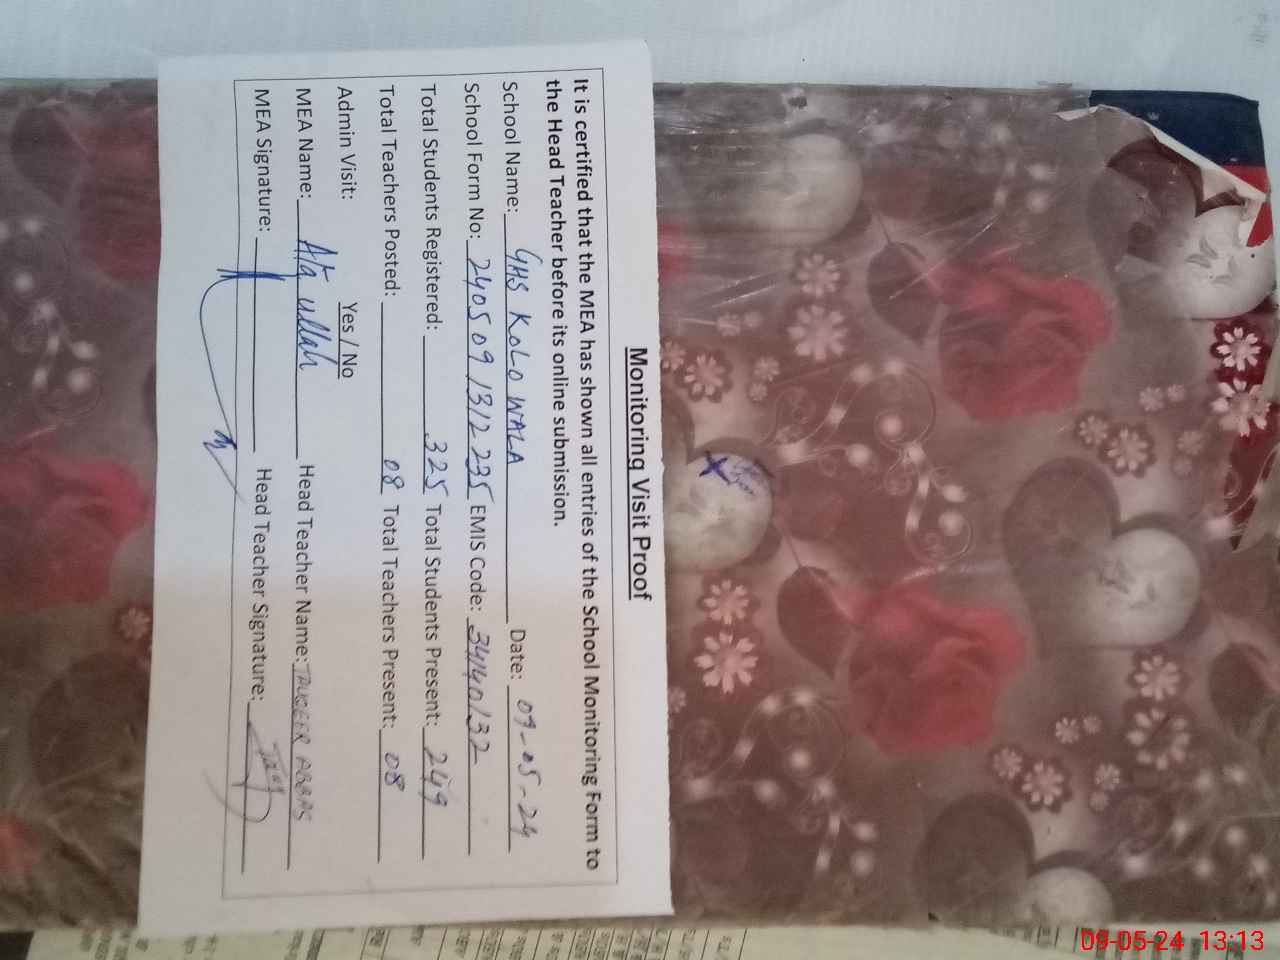 Monitoring Visit Proof
It is certified that the MEA has shown all entries of the School Monitoring Form to
the Head Teacher before its online submission.
School Name: GHS KOLO WALA Date: 09-05-24
School Form No: 240509131223S EMIS Code: 34140132
Total Students Registered: 325 Total Students Present: 249
Total Teachers Posted: 08 Total Teachers Present: 08
Admin Visit: Yes / No
MEA Name: Ata ullah Head Teacher Name: TAUQEER ABBAS
MEA Signature: Head Teacher Signature:
09-05-24 13:13